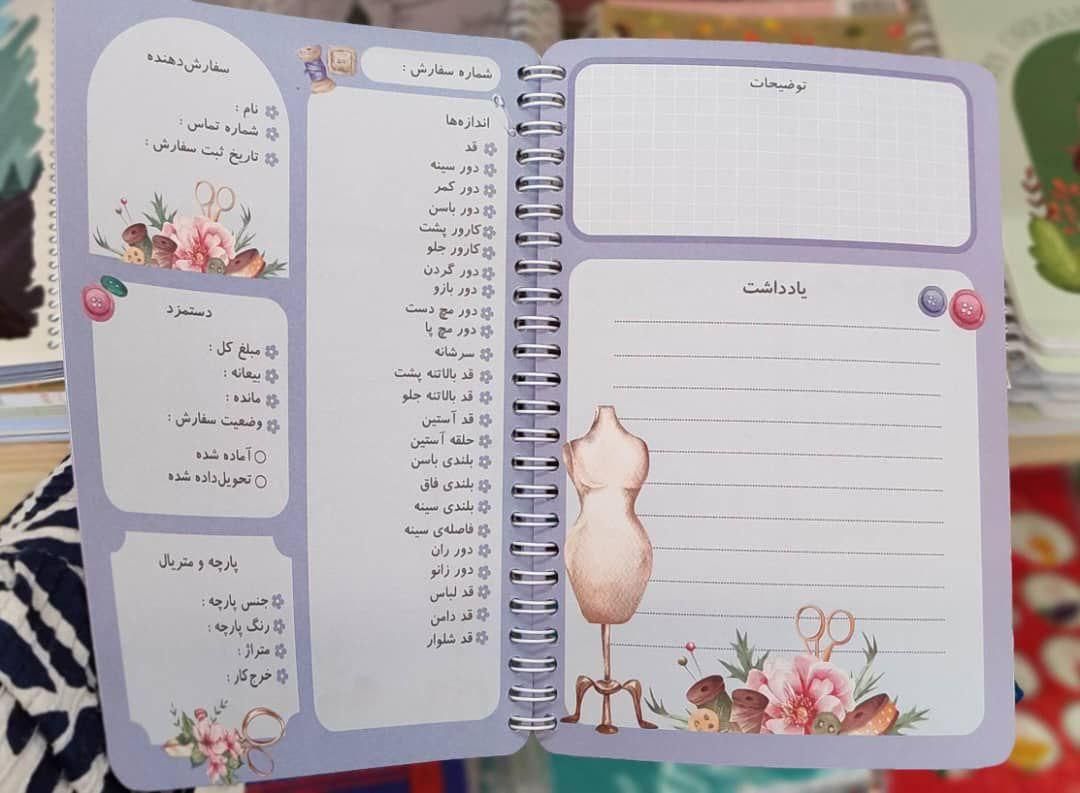 شماره سفارش :
اندازه‌ها
قد
دور سینه
دور کمر
دور باسن
کارور پشت
کارور جلو
دور گردن
دور بازو
دور مچ دست
دور مچ پا
سرشانه
قد بالاتنه پشت
قد بالاتنه جلو
قد آستین
حلقه آستین
بلندی باسن
بلندی فاق
بلندی سینه
فاصله‌ی سینه
دور ران
دور زانو
قد لباس
قد دامن
قد شلوار
سفارش‌دهنده
نام :
شماره تماس :
تاریخ ثبت سفارش :
دستمزد
مبلغ کل :
بیعانه :
مانده :
وضعیت سفارش :
آماده شده
تحویل‌داده شده
پارچه و متریال
جنس پارچه :
رنگ پارچه :
متراژ :
خرج‌کار :
توضیحات
یادداشت